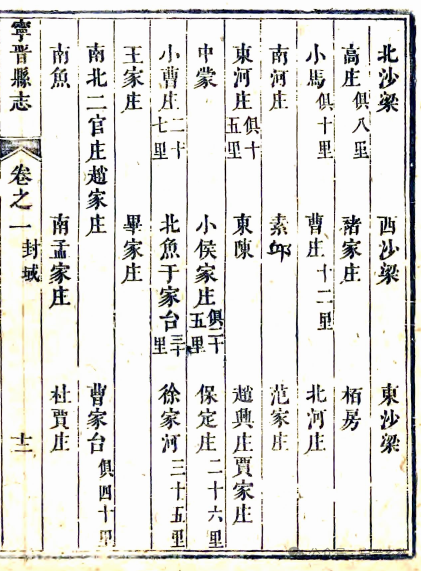 北沙梁 西沙梁 東沙梁
高庄俱八里 豬家庄 栢房
小馬俱十里 曹庄十二里 北河庄
南河庄 素邱 范家庄
東河庄俱十五里 東陳 趙興庄賈家庄
中蒙 小侯家庄俱二十五里 保定庄二十六里
小曹庄二十七里 北魚于家台三十里 徐家河三十五里
王家庄 畢家庄
南北二官庄趙家庄 曹家台俱四十里
南魚 南孟家庄 杜賈庄
寧晋縣志 卷之一 封域 十二